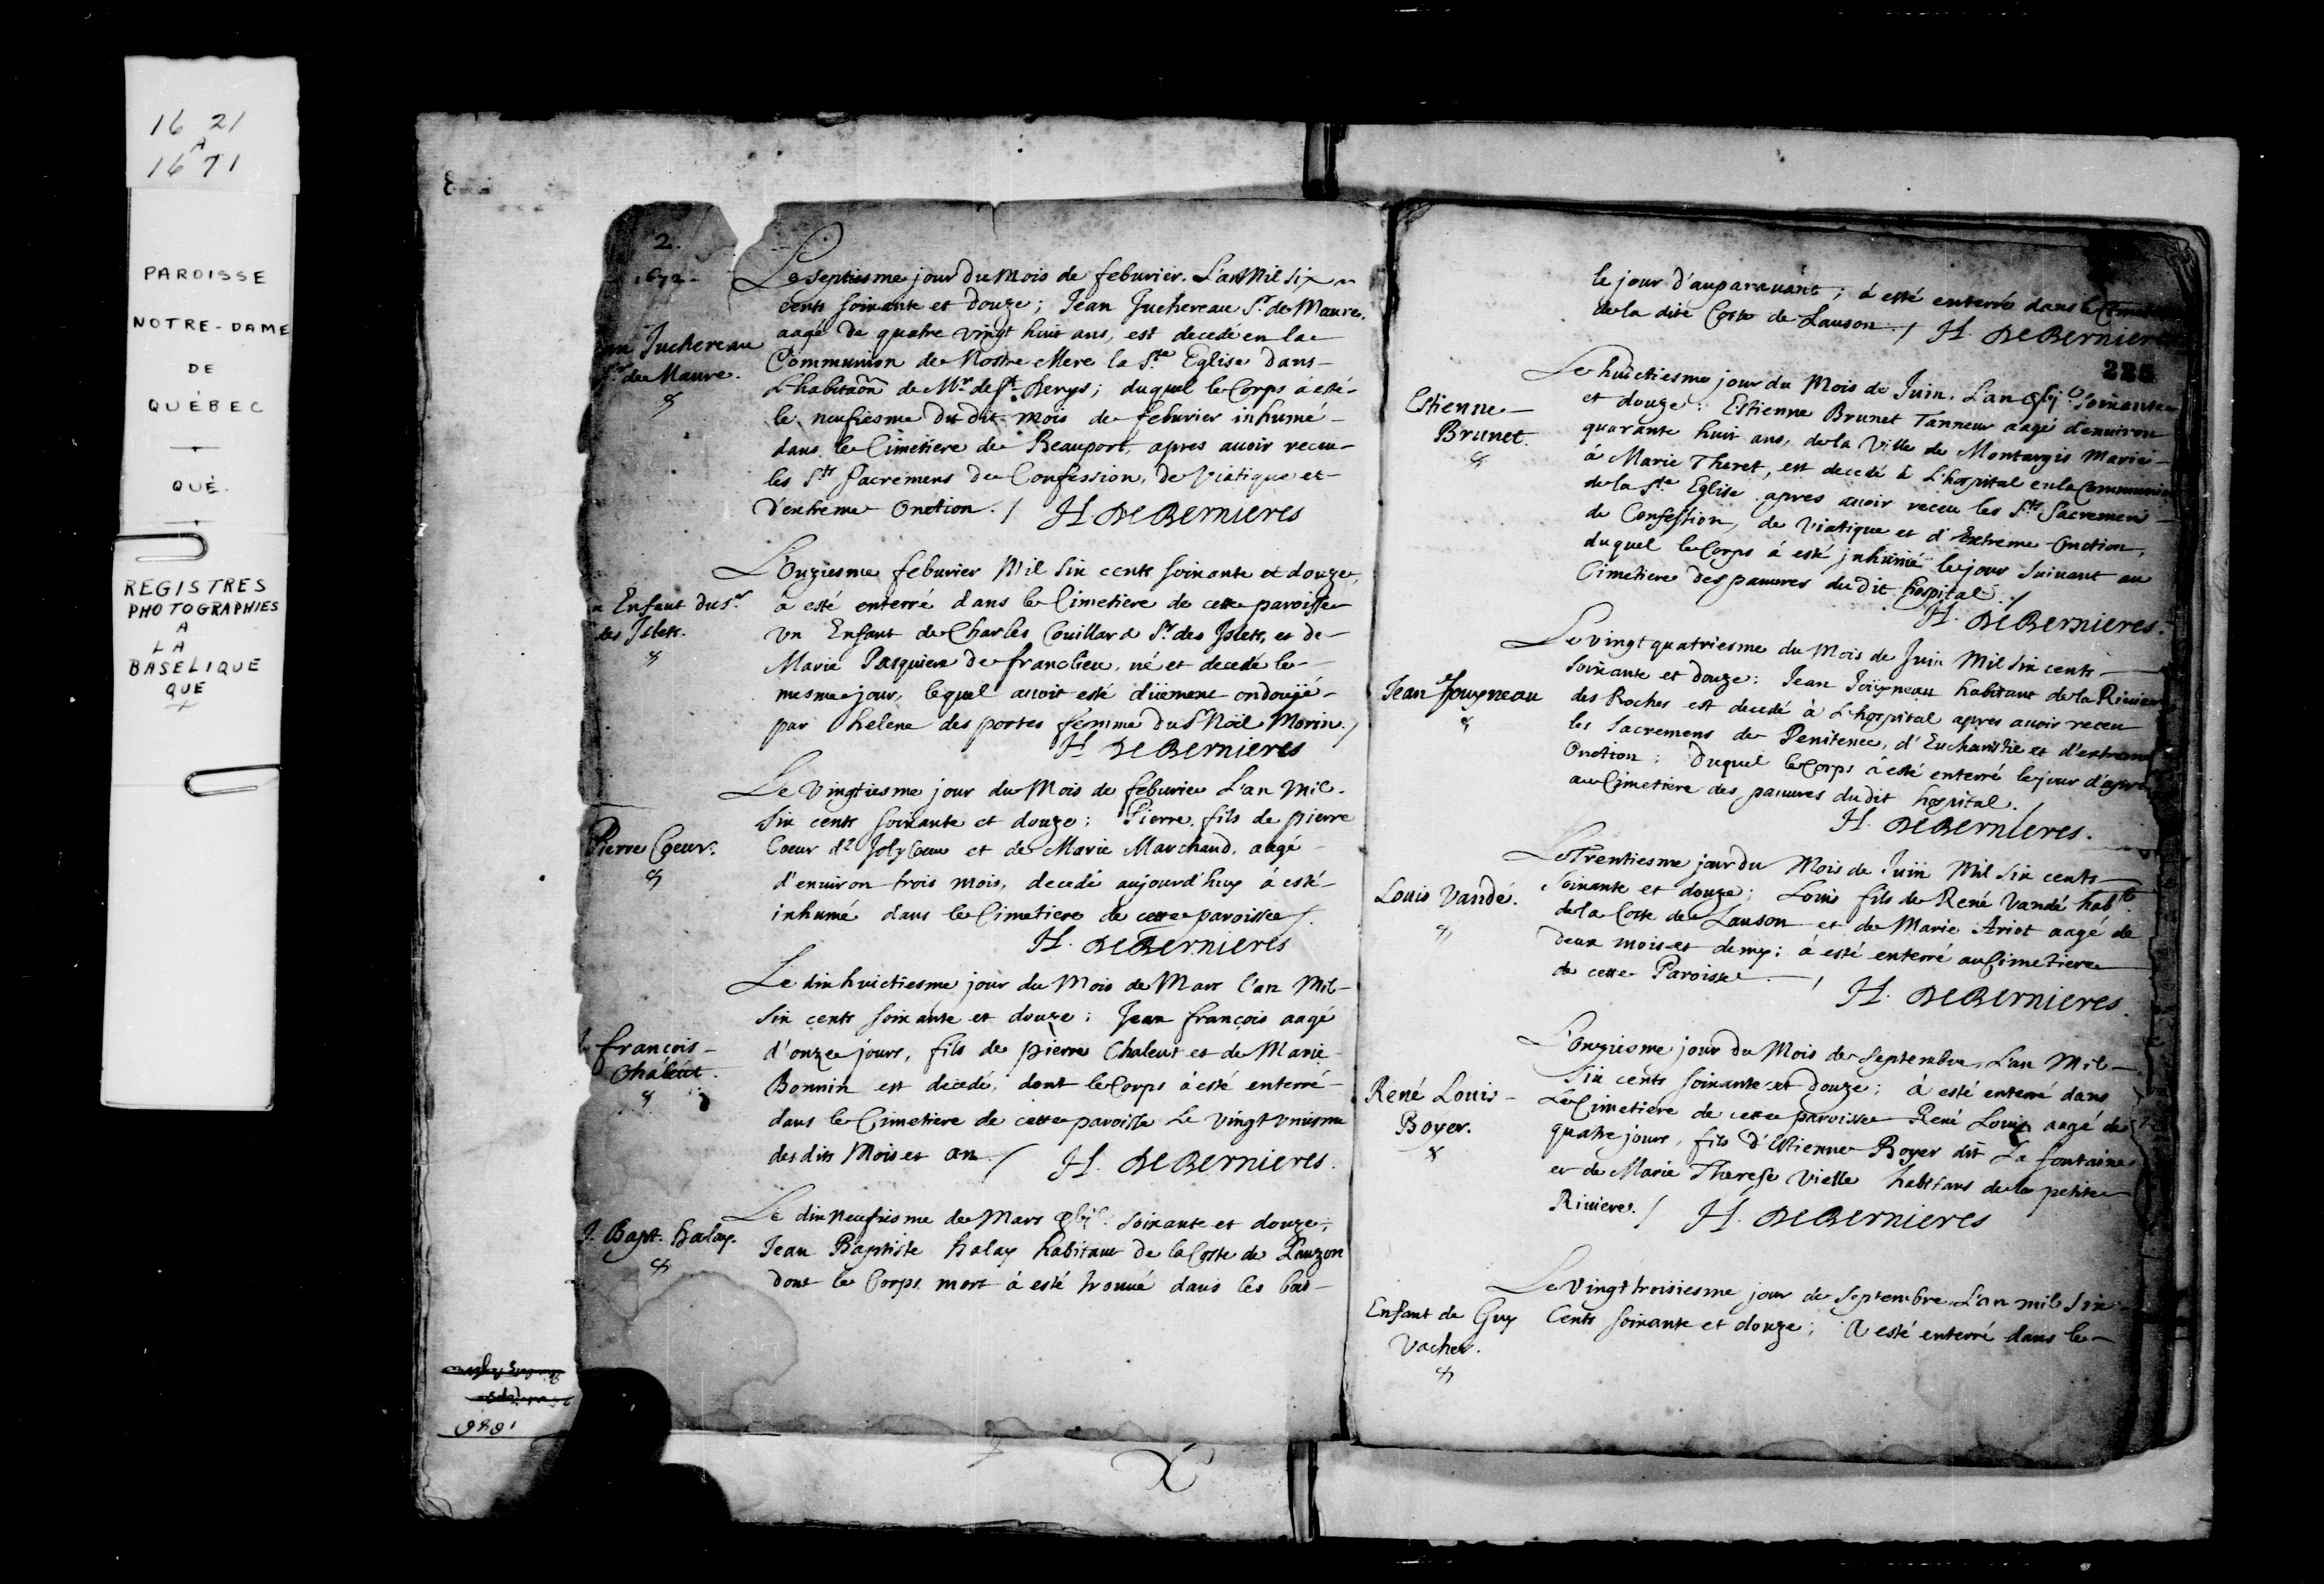 16 21
A
16 71
PAROISSE
NOTRE-DAME
DE
QUÉBEC
QUÉ.
REGISTRES
PHOTOGRAPHIES
A
LA
BASELIQUE
QUE
2.
1672-
Juchereau
Sr de Maure.
Le septiesme jour du Mois de feburier. L'an Mil Six
cents soixante et douze; Jean Juchereau Sr. de Maure,
aagé de quatre vingt huit ans, est decedé en la
Communion de Nostre Mere la Ste Eglise dans
L'habitaõn de Mr de St. Denys; duquel le Corps à esté
le neufiesme du dit mois de feburier inhumé
dans le Cimetiere de Beauport, apres auoir receu
les Sts Sacremens de Confession, de Viatique et
d'extreme Onction. / H. DE BERNIERES
Enfant du Sr
des Islets.
L'Onziesme feburier Mil Six cents soixante et douze,
a esté enterré dans le Cimetiere de cette paroisse
Vn Enfant de Charles Couillard Sr. des Islets, et de
Marie Pasquiere de franclieu, né et decedé le
mesme jour, lequel auoit esté düement ondoyé
par helene des portes femme du Sr Noël Morin. /
H. DE BERNIERES
Pierre Coeur.
Le Vingtiesme jour du Mois de feburier L'an Mil
Six cents soixante et douze; Pierre fils de pierre
Coeur dt Jolycoeur et de Marie Marchand, aagé
d'enuiron trois mois, decedé aujourd'huy à esté
inhumé dans le Cimetiere de cette paroisse /.
H. DE BERNIERES
françois
Chaleut.
Le dixhuictiesme jour du Mois de Mars l'an Mil
Six cents soixante et douze; Jean françois aagé
d'onze jours, fils de pierre Chaleut et de Marie
Bonnin est decedé, dont le Corps à esté enterré
dans le Cimetiere de cette paroisse Le Vingt Vniesme
des dits Mois et an. / H. DE BERNIERES.
J. Bapt. halay.
Le dixneufiesme de Mars soixante et douze;
Jean Baptiste halay habitant de la Coste de Lauzon
dont le Corps mort à esté trouué dans les bois
le jour d'auparauant; à esté enterré dans le
de la dite Coste de Lauson. / H. DE BERNIERES
225
Estienne
Brunet.
Le huictiesme jour du Mois de Juin. L'an soixante
et douze: Estienne Brunet Tanneur aagé d'enuiron
quarante huit ans, de la Ville de Montargis Marié
à Marie Theret, est decedé à L'hospital en la Communion
de la Ste Eglise apres auoir receu les Sts Sacremens
de Confession, de Viatique et d'Extreme Onction,
duquel le Corps à esté jnhumé le jour suiuant au
Cimetiere des pauures du dit hospital. /
H. DE BERNIERES.
Jean Jouyneau
Le Vingt quatriesme du Mois de Juin Mil Six cents
soixante et douze: Jean Joüyneau habitant de la Riuiere
des Roches est decedé à L'hospital apres auoir receu
les Sacremens de Penitence, d'Eucharistie et d'extreme
Onction; Duquel le Corps à esté enterré le jour d'apres
au Cimetiere des pauures du dit hospital. /
H. DE BERNIERES.
Louis Vandé.
Le Trentiesme jour du Mois de Juin Mil Six cents
Soixante et douze; Louis fils de René Vandé habt
de la Coste de Lauson et de Marie Ariot aagé de
deux mois et demy; à esté enterré au Cimetiere
de cette Paroisse. /
H. DE BERNIERES.
René Louis
Boyer.
L'Onziesme jour du Mois de Septembre L'an Mil
Six cents soixante et douze; à esté enterré dans
Le Cimetiere de cette paroisse René Louis aagé de
quatre jours, fils d'Estienne Boyer dit La fontaine
et de Marie Therese Vielle habitans de la petite
Riuiere. / H. DE BERNIERES
Enfant de Guy
Vacher.
Le Vingt troisiesme jour de Septembre L'an mil six
Cents soixante et douze; A esté enterré dans le